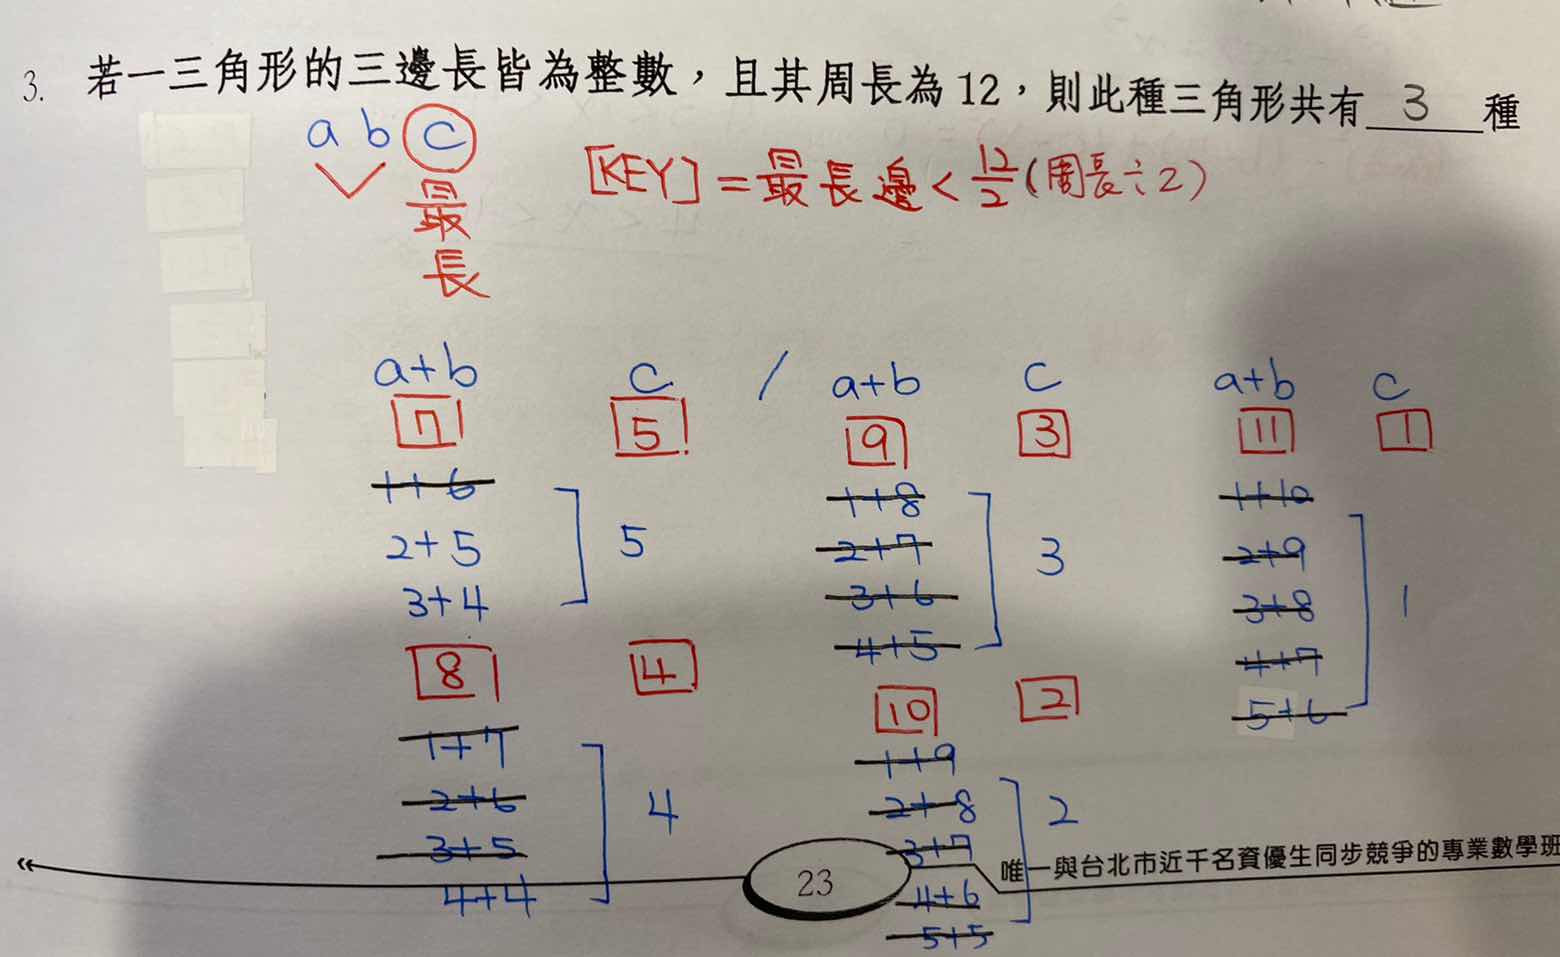 3. 若一三角形的三邊長皆為整數，且其周長為 12，則此種三角形共有 3 種
a b c
最長
[KEY] = 最長邊 < 12/2 (周長÷2)
a+b c / a+b c a+b c
7 5
1+6
2+5
3+4
5
8 4
1+7
2+6
3+5
4+4
4
9 3
1+8
2+7
3+6
4+5
3
10 2
1+9
2+8
3+7
4+6
5+5
2
11 1
1+10
2+9
3+8
4+7
5+6
1
23
唯一與台北市近千名資優生同步競爭的專業數學班